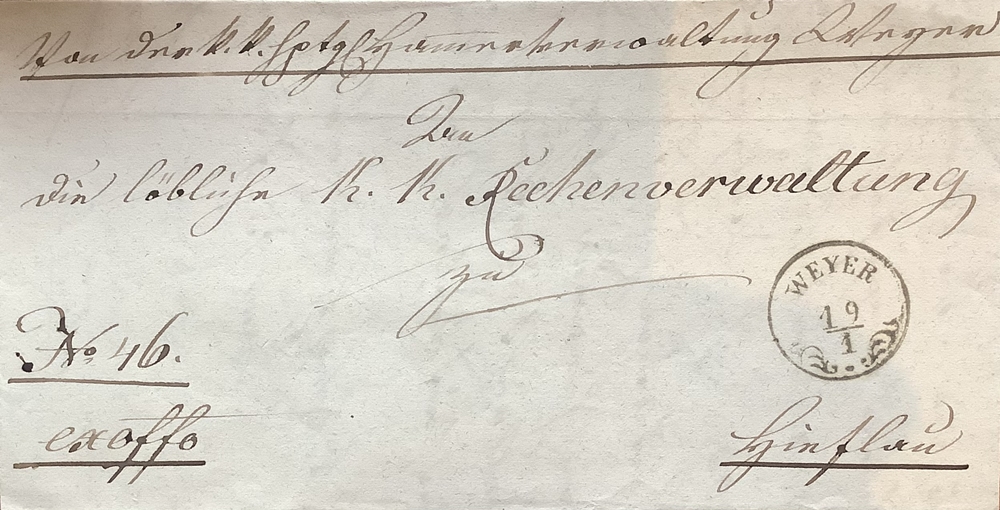 Von der k. k. Hptg. Hammerverwaltung Weyer
An
die löbliche K. K. Rechenverwaltung
zu
WEYER
19
1
No 46.
exoffo
Hieflau